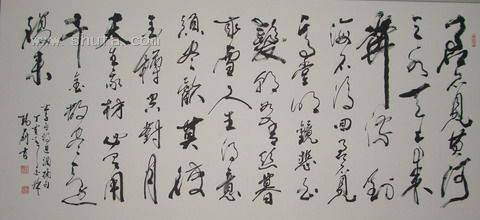 君不見黃河
之水天上來
奔流到
海不復回君不見
高堂明鏡悲白
髮朝如青絲暮
成雪人生得意
須盡歡莫使
金樽空對月
天生我材必有用
千金散盡還
復來
李白將進酒摘句
www.shufa.com